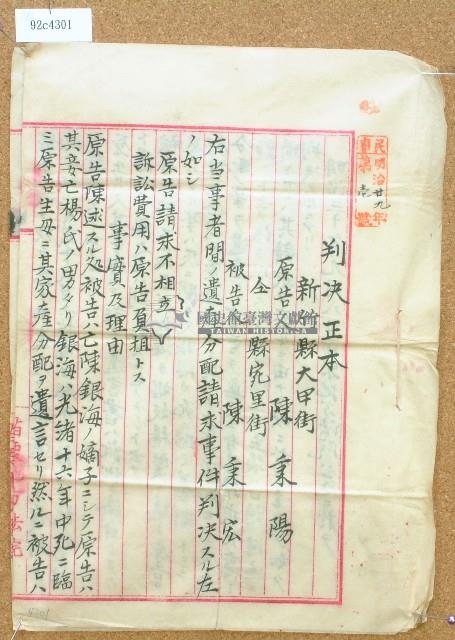 92c4301
明治廿九年
民
第
壱
號
判決正本
新竹縣大甲街
原告 陳秉陽
仝縣宛里街
被告 陳秉宏
右当事者間ノ遺産分配請求事件判決スル左
ノ如シ
原告請求不相立
訴訟費用ハ原告負担トス
事實及理由
原告陳述スル処被告ハ亡陳銀海嫡子ニシテ原告ハ
其妾亡楊氏ノ男タリ銀海ハ光緒十六年中死ニ臨
ミ原告生母ニ其家産分配ヲ遺言セリ然ルニ被告ハ
國史館臺灣文獻館
TAIWAN HISTORICA
地方法院